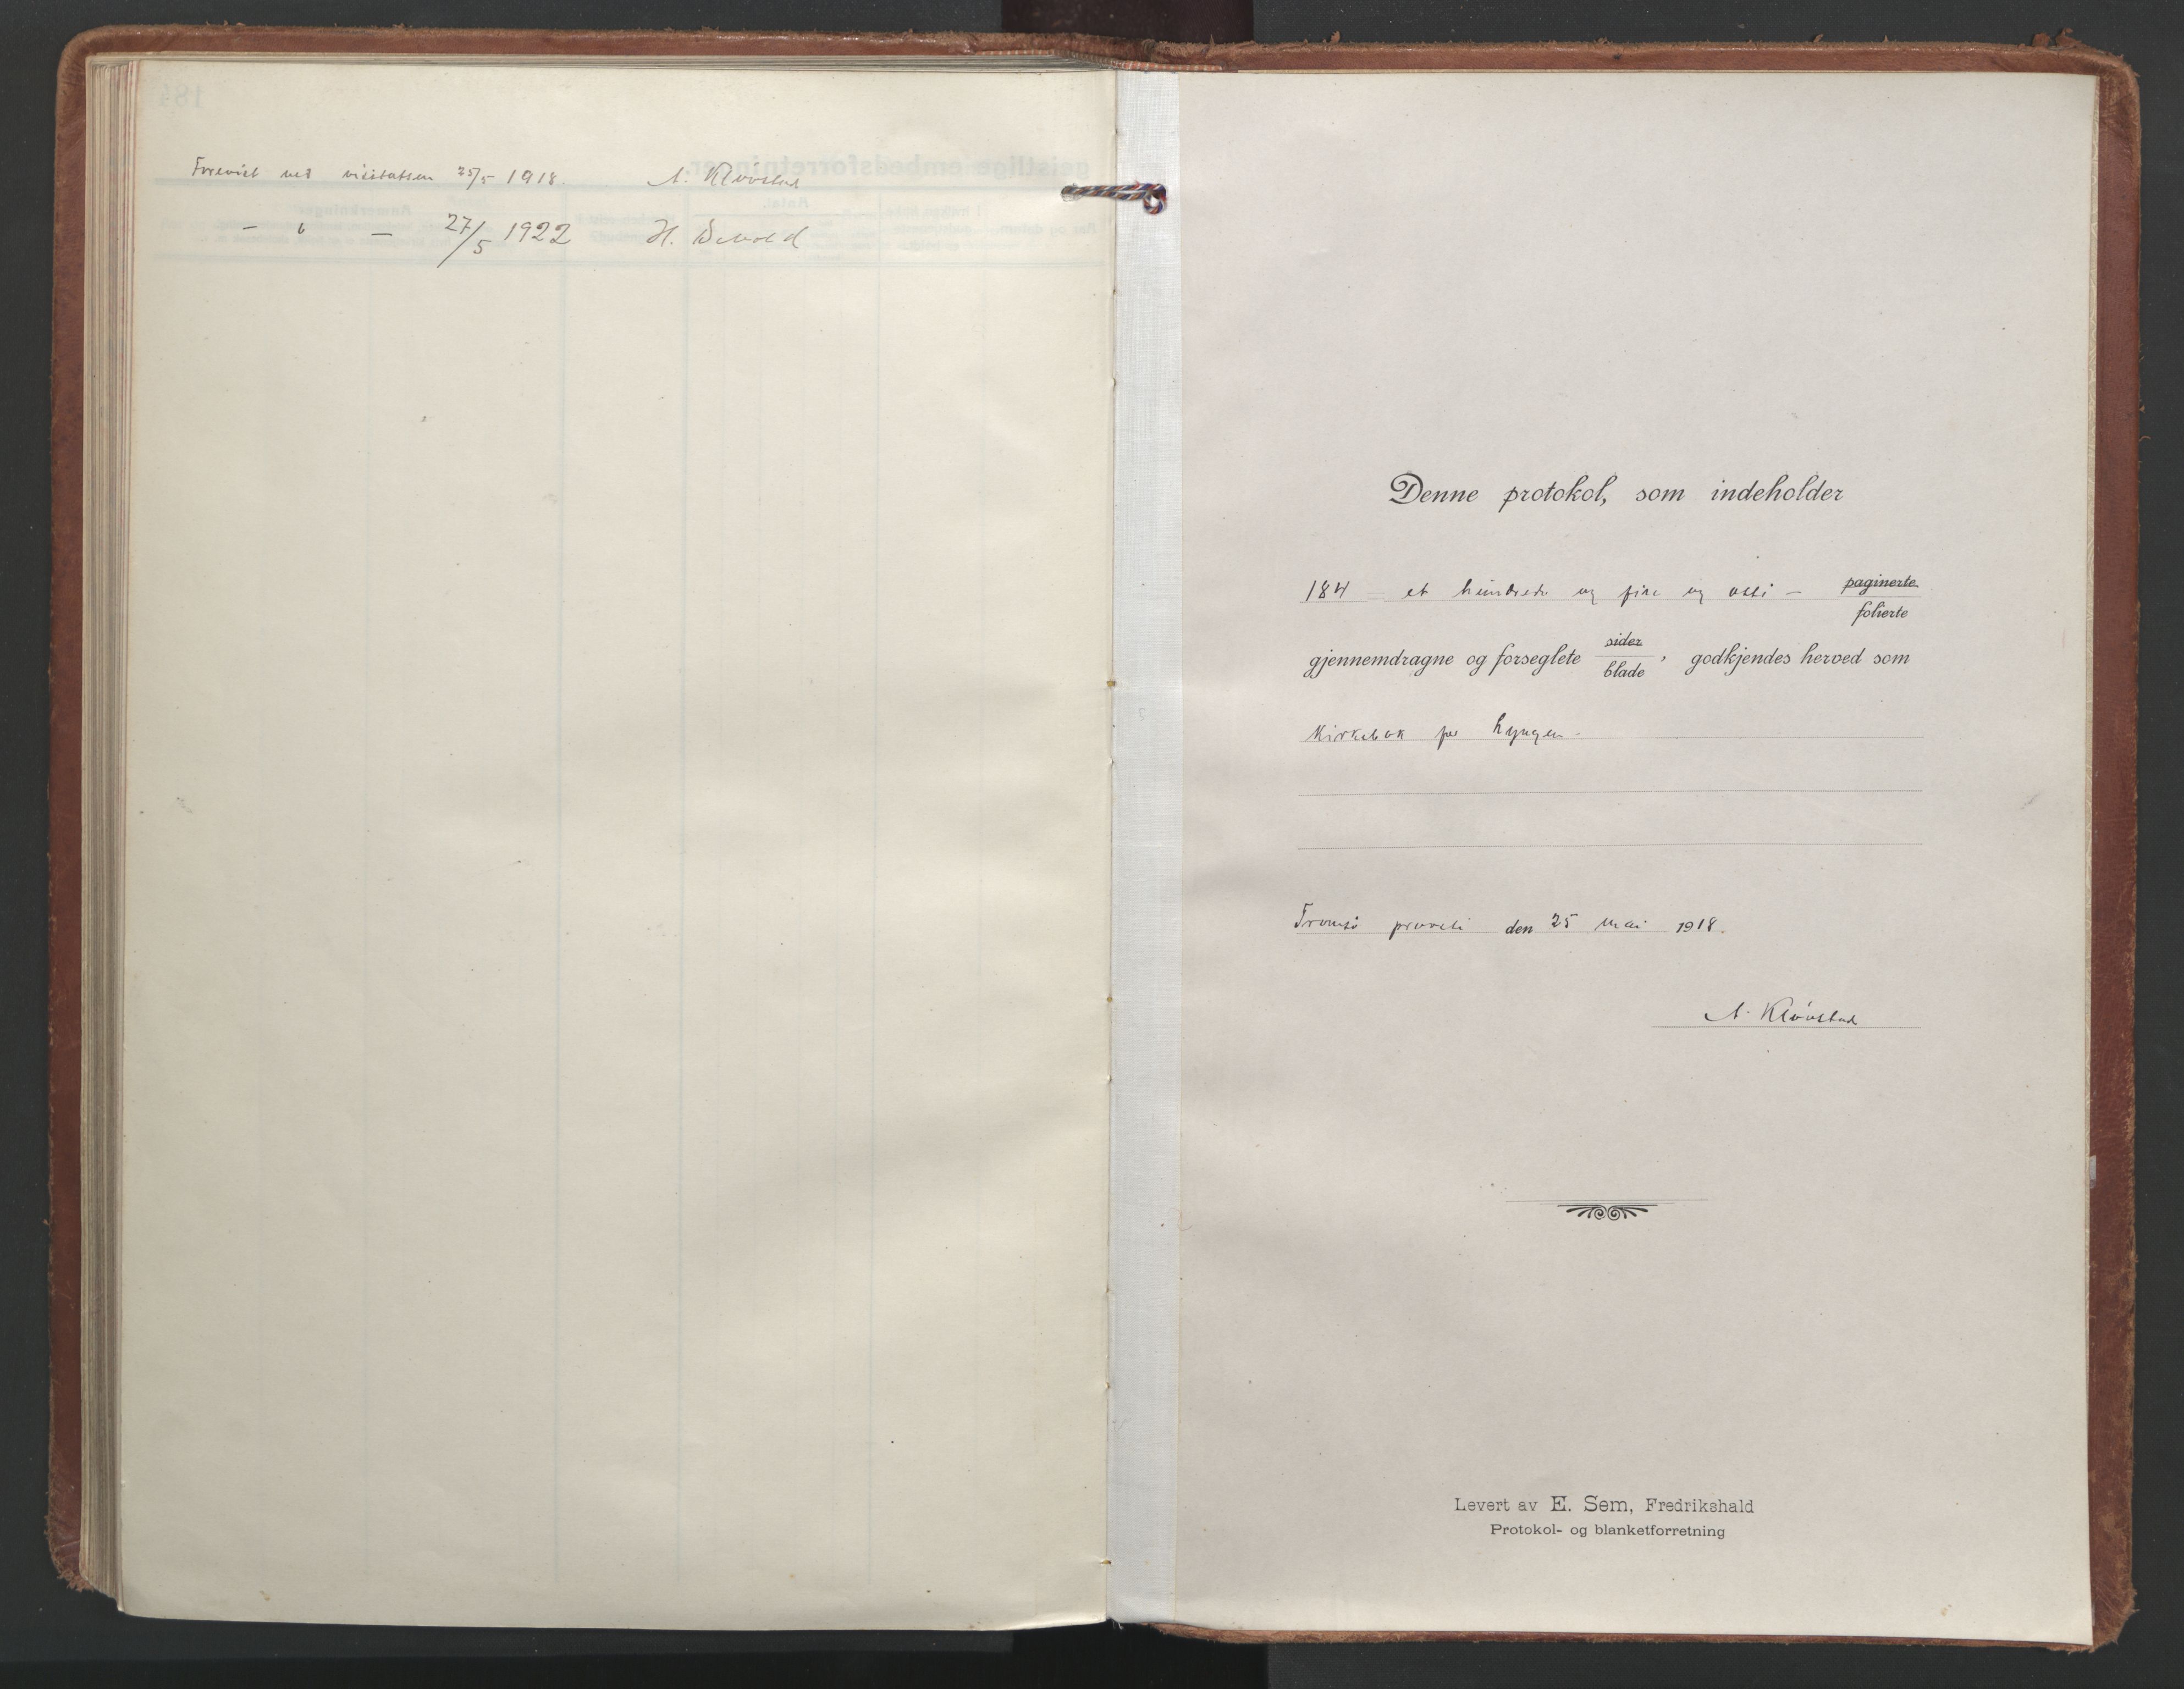 Forevist ved visitatsen 25/5 1918. A. Kløvstad
— " — 27/5 1922 H.
Denne protokol, som indeholder
184 — et hundrede og fire og otti — paginerte
folierte
gjennemdragne og forseglete sider
blade, godkjendes herved som
Kirkebok for Lyngen.
Tromsø prosti den 25 mai 1918.
A. Kløvstad
Levert av E. Sem, Fredrikshald
Protokol- og blanketforretning